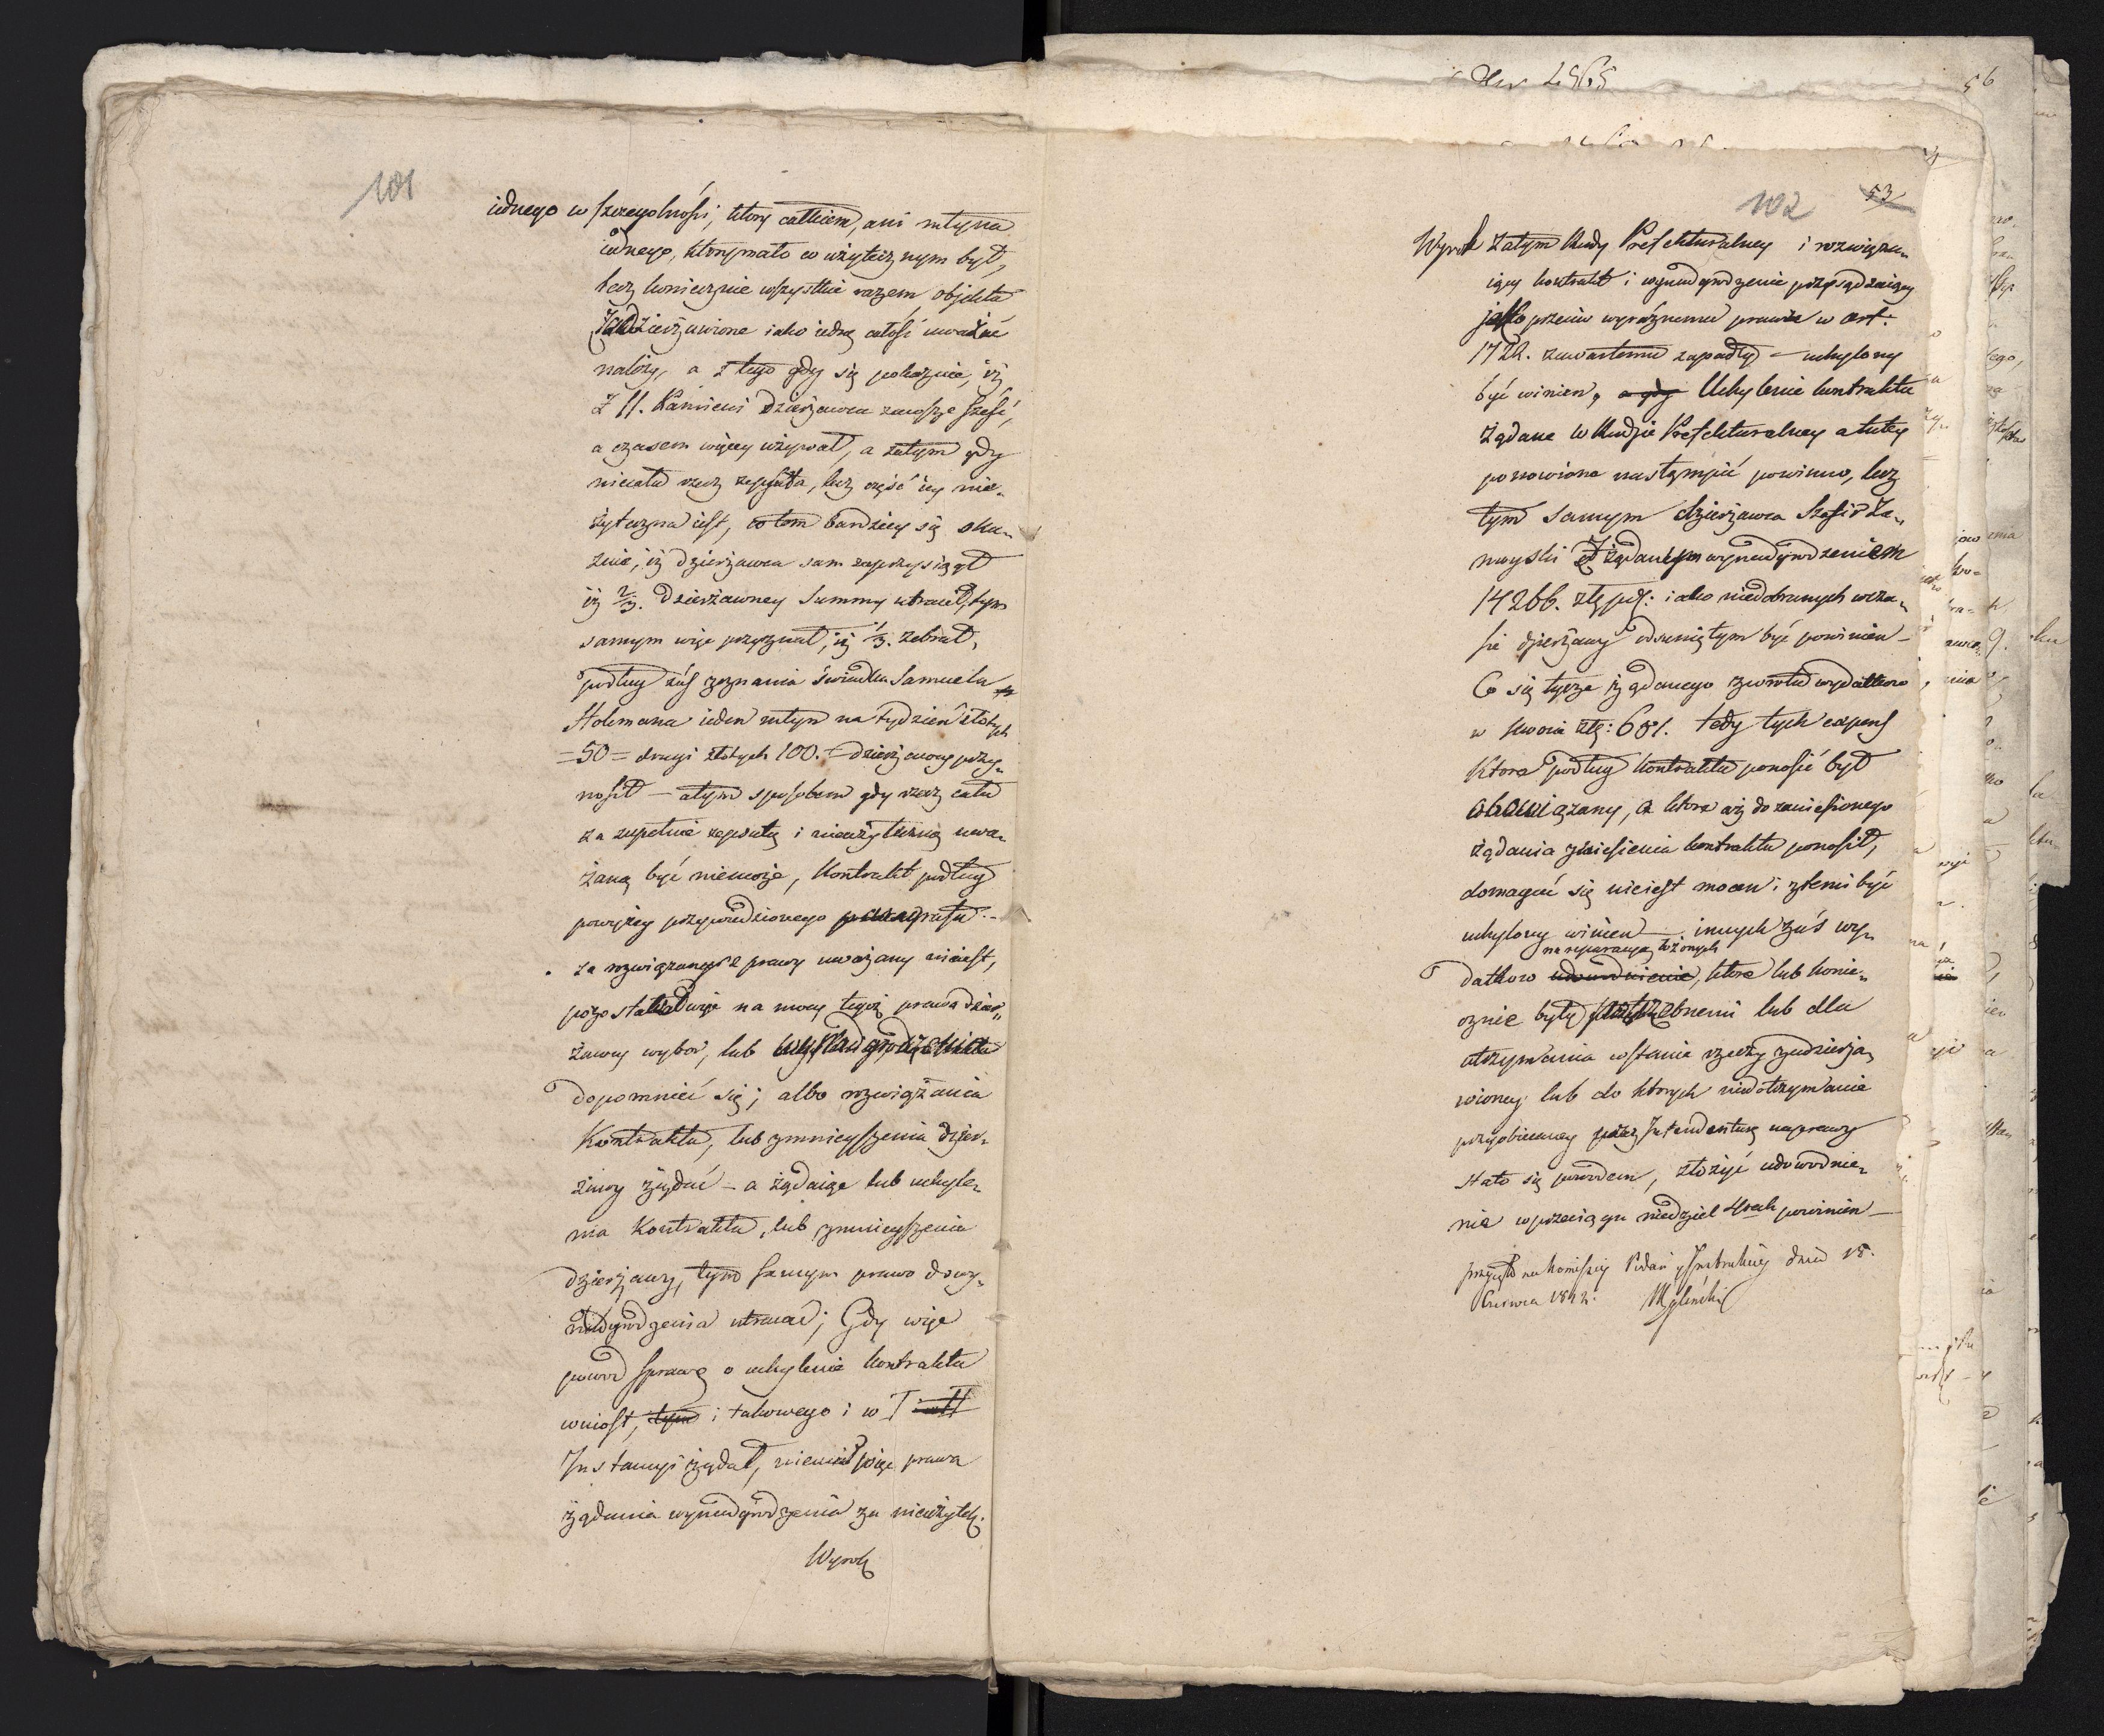 101
iednego w szczegolności, ktory całkiem, ani młyna
iednego, ktorymato co użytecznym był,
lecz koniecznie wszystkie razem objekta
Zadzierżawione iako iedną całość uważać
należy, a z tego gdy się pokazuie, iż
Z 11. Kamieni Dzierżawca zawsze sześć,
a czasem więcey używał, a zatym gdy
niecała rzecz zepsuta, lecz część iey nie„
żyteczna iest, co tem bardziey się oka„
zuie, iż dzierżawca sam zaprzysiągł
iż 2/3. Dzierżawney Summy utracił, tym
samym więc przyznał, iż 1/3. zebrał,
podług zaś zeznania świadka Samuela
Holcmana ieden młyn na tydzień złotych
=50= drugi złotych 100. = Dzierżawcy przy„
nosił — atym sposobem gdy rzecz cała
za zupełnie zepsutą i nieużyteczną uwa„
żaną być niemoże, Kontrakt podług
powyżey przywiedzionego paragrafu
za rozwiązany z prawa uważany nieiest,
pozostał więc na mocy tegoż prawa dzier„
żawcy wybor, lub wynadgrodzenia
dopomnieć się; albo rozwiązania
Kontraktu, lub zmnieyszenia dzier„
żawy żądać — a żądaiąc lub uchyle„
nia Kontraktu, lub zmnieyszenia
dzierżawy, tym samym prawo do wy„
nadgrodzenia utracać; Gdy więc
powod sprawę o uchylenie kontraktu
wniosł, tym i takowego i w I i II
Instancyi żądał, niemiał więc prawa
żądania wynadgrodzenia za nieużytek.
Wyrok
102 53
Wyrok zatym Rady Prefekturalney i rozwiązu„
iący kontrakt i wynadgrodzenie przysądzaiący
jako przeciw wyraźnemu prawu w art:
1722. zawartemu zapadły — uchylony
być winien, a gdy Uchylenie kontraktu
żądane w Radzie Prefekturalney a tutey
ponowione nastąmpić powinno, lecz
tym samym dzierżawca Szafir Za„
moyski z żądanym wynadgrodzeniem
14266. złł. pol: iako niedobranych wcza„
sie dzierżawy odsuniętym być powinien —
Co się tycze żądanego zwrotu wydatkow
w kwocie złł: 681. tedy tych expens
Ktore podług kontraktu ponosić był
obowiązany, a ktore aż do zaniesionego
żądania zniesienia kontraktu ponosił,
domagać się nieiest mocen i z temi być
uchylony winien — innych zaś wy„
na reparacyą łożonych
datkow udowodnienie, ktore lub konie„
cznie były potrzebnemi lub dla
utrzymania w stanie rzeczy zadzierża„
wioney lub do ktorych niedotrzymanie
przyobiecaney przez Intendenturę naprawy
stało się powodem, złożyć udowodnie„
nie w przeciągu niedziel 4rech powinien —
przyięto na Komissyi Podań y Instrukcy dnia 18.
Czerwca 1812. Myliński
56